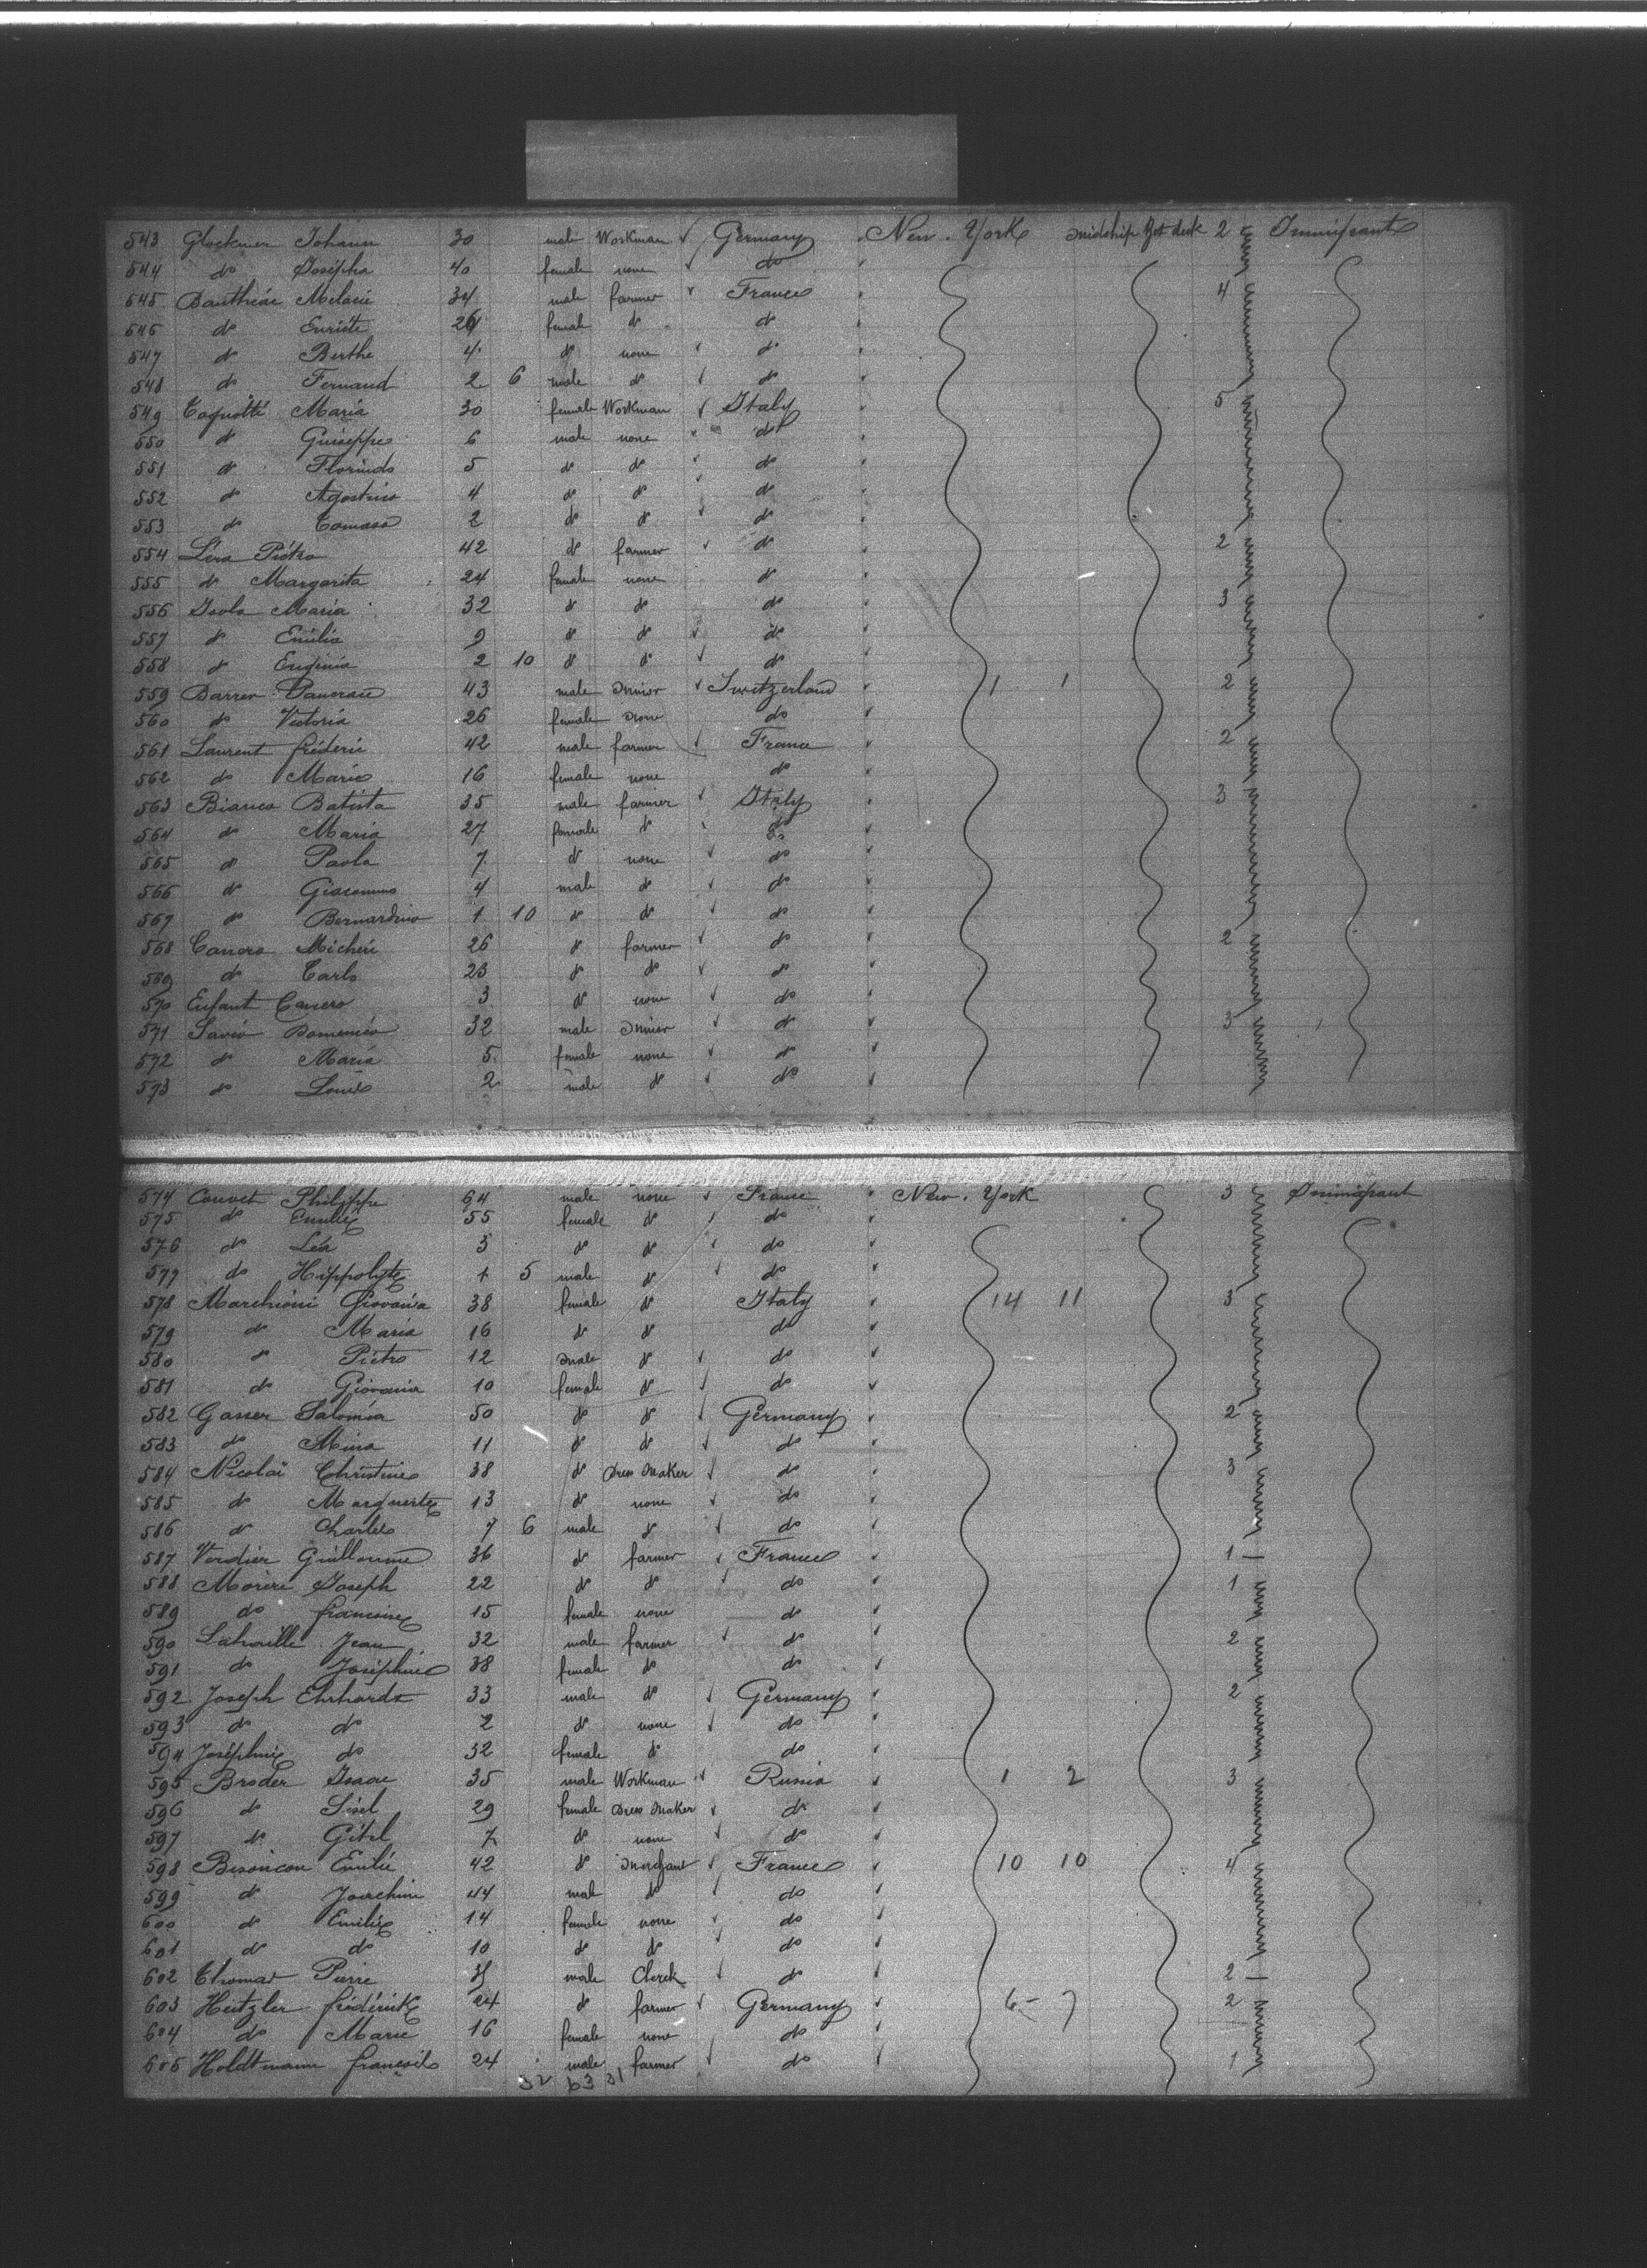 543 Glockner Johann 30 male Workman Germany New. York midship 1st deck 2 Immigrant
544 do Josépha 40 female none do
545 Melanie 34 male farmer France 4
546 do 26 female do do
547 do Berthe 4 do none do
548 do Fernand 2 6 male do do
549 Maria 30 female Workman Italy 5
550 do Guiseppe 6 male none do
551 do Florindo 5 do do do
552 do Agostino 4 do do do
553 do Tomaso 2 do do do
554 Piétro 42 do farmer do 2
555 do Margarita 24 female none do
556 Isola Maria 32 do do do 3
557 do Emilia 9 do do do
558 do Eugénia 2 10 do do do
559 Barrer 43 male minor Switzerland 1 1 2
560 do Victoria 26 female none do
561 Laurent frédéric 42 male farmer France 2
562 do Marie 16 female none do
563 Bianco Batista 35 male farmer Italy 3
564 do Maria 27 female do do
565 do Paola 7 do none do
566 do Giacommo 4 male do do
567 do Bernardino 1 10 do do do
568 26 do farmer do 2
569 do Carlo 23 do do do
570 Enfant 3 do none do
571 Savio Domenico 32 male minor do 3
572 do Maria 5 female none do
573 do Louis 2 male do do
574 Couvet Philippe 64 male none France New. York 3 Immigrant
575 do Emilie 55 female do do
576 do Léa 3 do do do
577 do Hippolyte 1 5 male do do
578 Marchioni Giovania 38 female do Italy 14 11 3
579 do Maria 16 do do do
580 do Pietro 12 male do do
581 do Giovania 10 female do do
582 Gasser Saloméa 50 do do Germany 2
583 do Mina 11 do do do
584 Nicolaï Christine 38 do Dress Maker do 3
585 do Marguerite 13 do none do
586 do Charles 7 6 male do do
587 Verdier Guillaume 36 do farmer France 1 —
588 Morère Joseph 22 do do do 1
589 do francoise 15 female none do
590 Jean 32 male farmer do 2
591 do Joséphine 38 female do do
592 Joseph Ehrhardt 33 male do Germany 2
593 do do 2 do none do
594 Joséphine do 32 female do do
595 Broder Isaac 35 male Workman Russia 1 2 3
596 do Sisel 29 female Dress Maker do
597 do Gitel 7 do none do
598 Besoncon Emilie 42 do merchant France 10 10 4
599 do Joachim 44 male do do
600 do Emilie 14 female none do
601 do do 10 do do do
602 Thomas Pierre male Clerck do 2 —
603 Heitzler frédérick 24 do farmer Germany 6 - 7 2
604 do Marie 16 female none do
605 Holdtmann francois 24 male farmer do 1
32 63 31